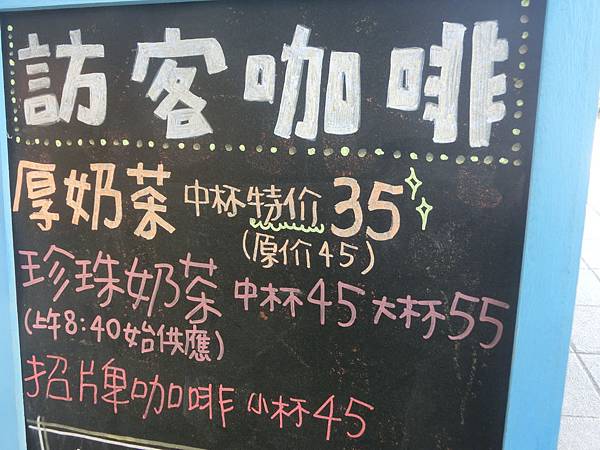 訪客咖啡
厚奶茶 中杯特价35
(原价45)
珍珠奶茶 中杯45 大杯55
(上午8:40始供應)
招牌咖啡 小杯45